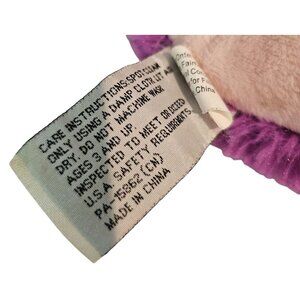 CARE INSTRUCTIONS:SPOT CLEAN
ONLY USING A DAMP CLOTH. LET AIR
DRY. DO NOT MACHINE WASH
AGES 3 AND UP.
INSPECTED TO MEET OR EXCEED
U.S.A SAFETY REQUIREMENTS.
PA-15862(CN)
MADE IN CHINA
China